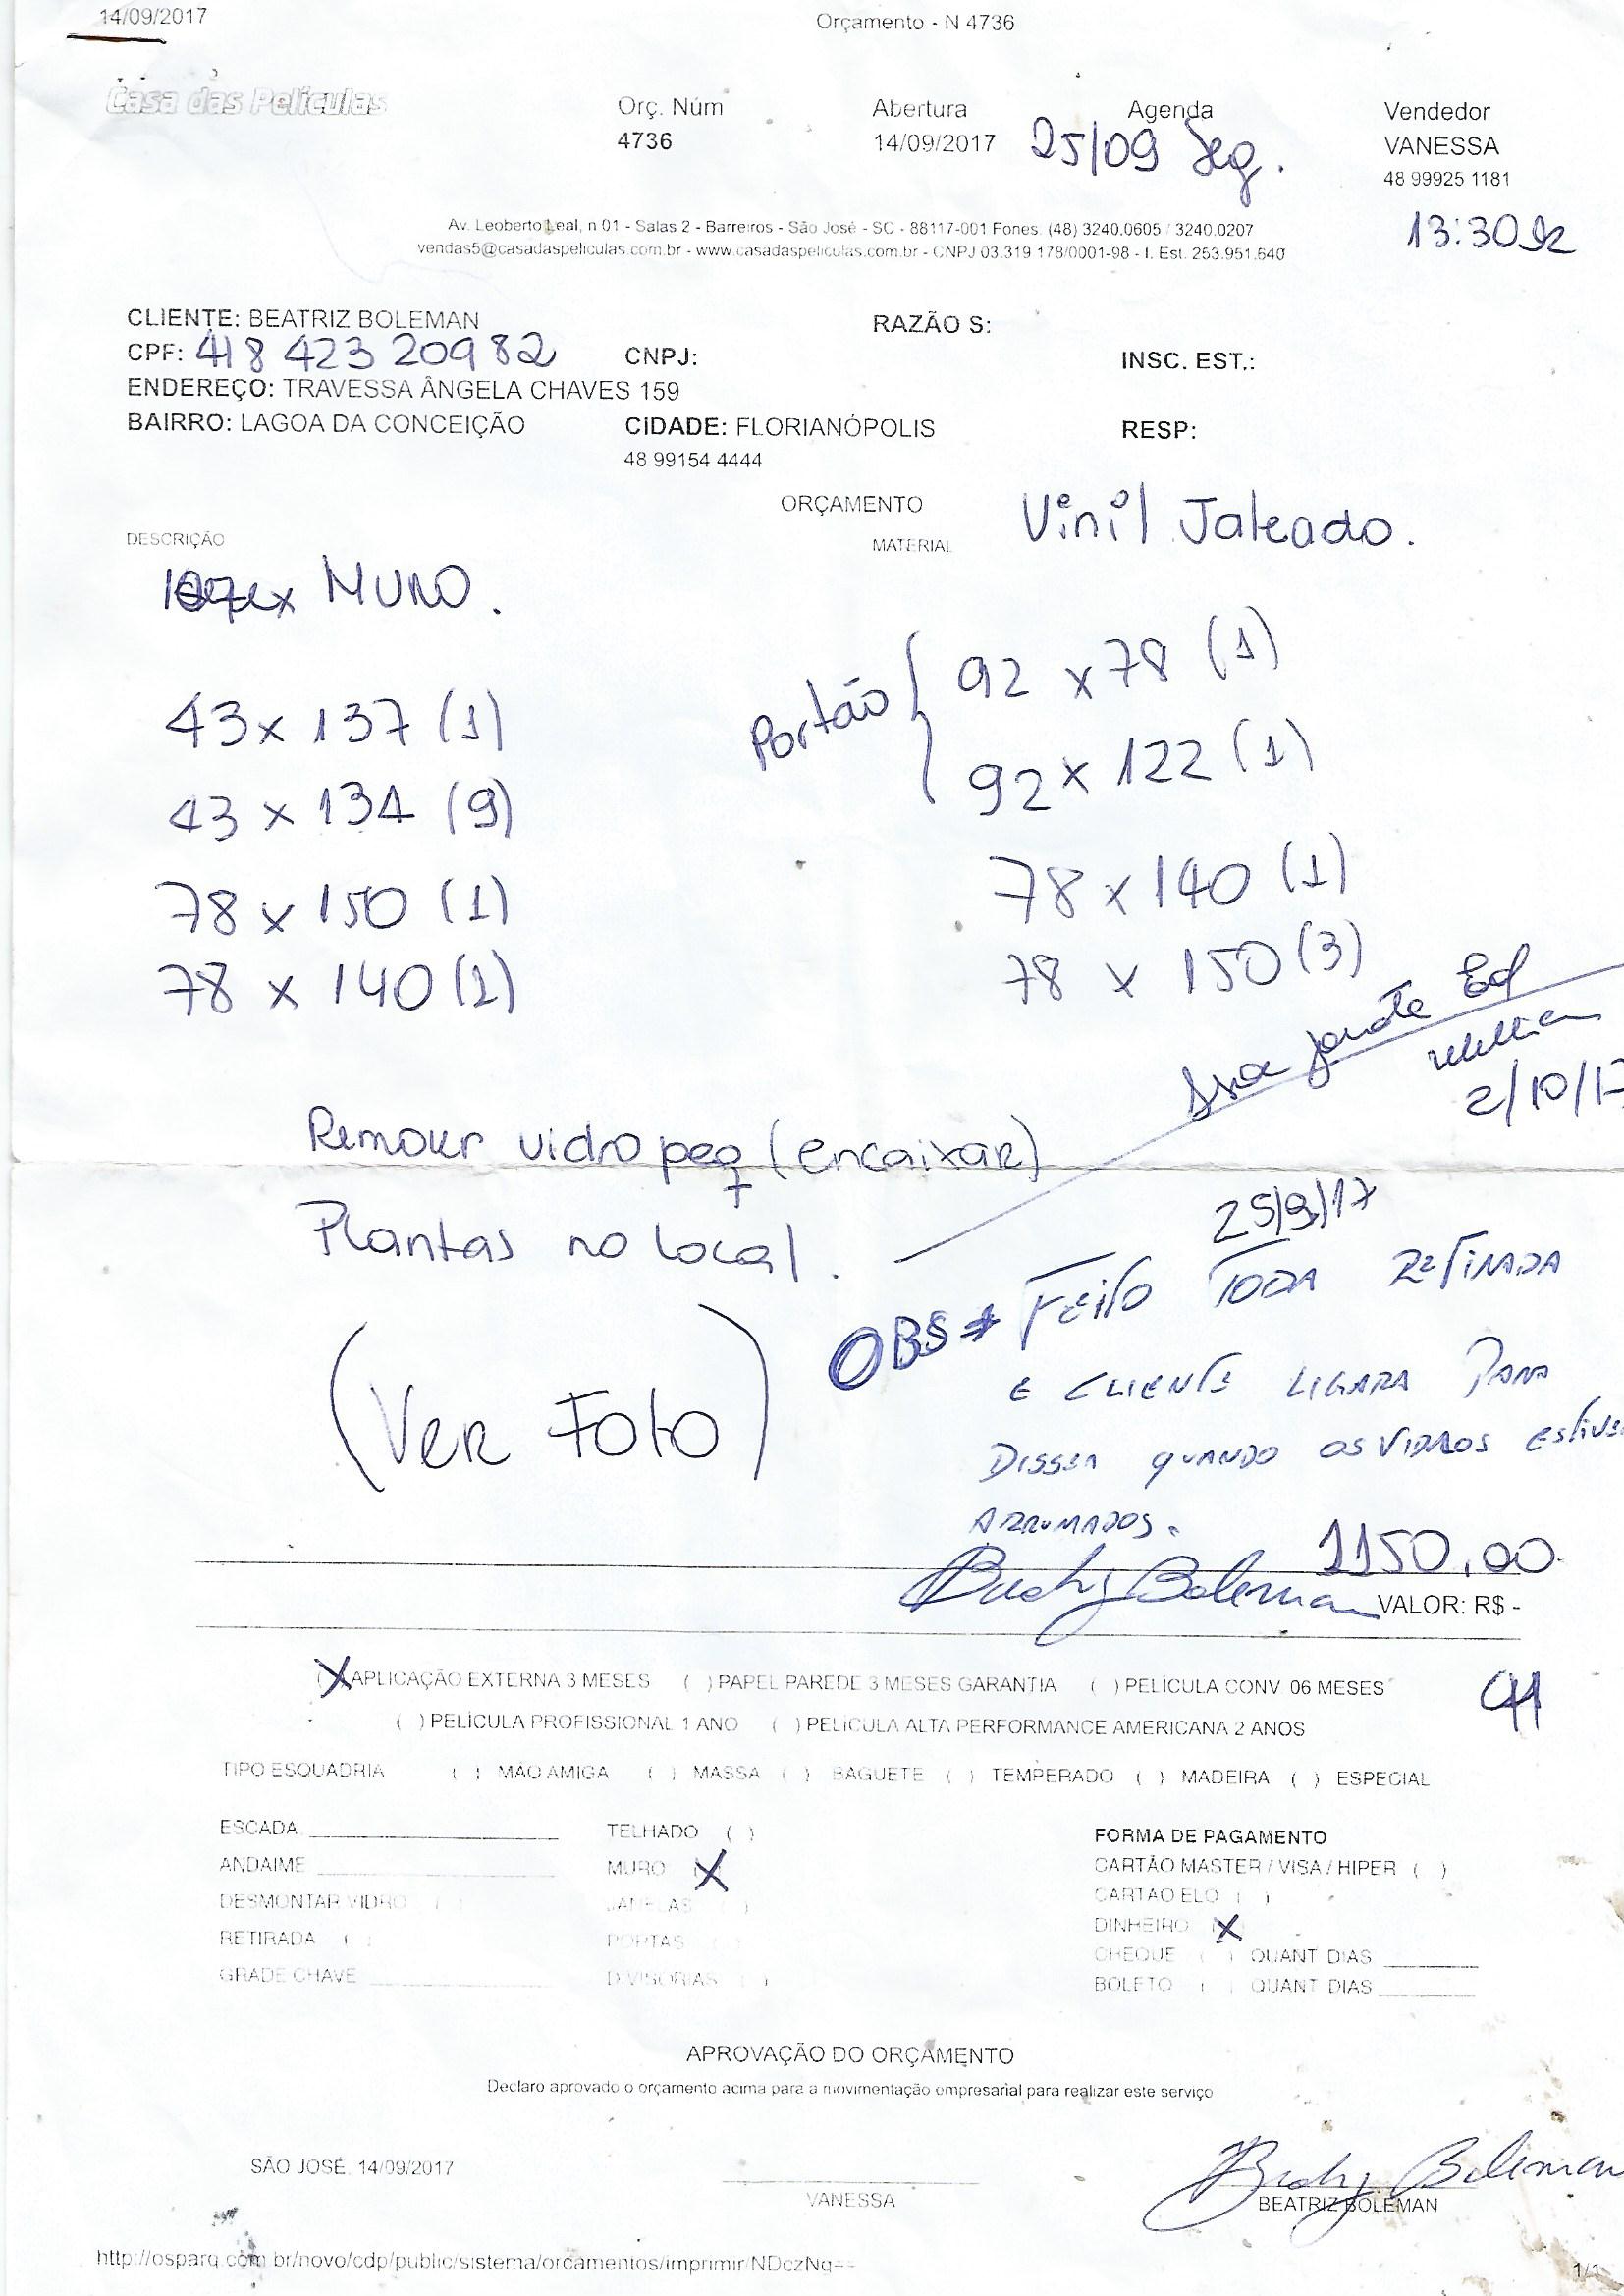 14/09/2017 Orçamento - N 4736
Casa das Películas Orç. Núm Abertura Agenda Vendedor
4736 14/09/2017 25/09 Seg. VANESSA
48 99925 1181
13:30
Av. Leoberto Leal, n 01 - Salas 2 - Barreiros - São José - SC - 88117-001 Fones. (48) 3240.0605 / 3240.0207
vendas5@casadaspeliculas.com.br - www.casadaspeliculas.com.br - CNPJ 03.319 178/0001-98 - I. Est. 253.951.640
CLIENTE: BEATRIZ BOLEMAN RAZÃO S:
CPF: 418 423 209 82 CNPJ: INSC. EST.:
ENDEREÇO: TRAVESSA ÂNGELA CHAVES 159
BAIRRO: LAGOA DA CONCEIÇÃO CIDADE: FLORIANÓPOLIS RESP:
48 99154 4444
ORÇAMENTO
DESCRIÇÃO MATERIAL Vinil Jateado.
MURO.
Portão
92 x 78 (1)
43 x 137 (1)
92 x 122 (1)
43 x 134 (9)
78 x 150 (1) 78 x 140 (1)
78 x 140 (1) 78 x 150 (3)
2/10/17
Remover vidro peq (encaixar)
+
Plantas no local.
25/9/17
OBS FEITO TODA RETIRADA
E CLIENTE LIGARA PARA
(Ver Foto)
DISSER QUANDO OS VIDROS
ARRUMADOS.
1150,00
Beatriz Boleman VALOR: R$ -
(X) APLICAÇÃO EXTERNA 3 MESES ( ) PAPEL PAREDE 3 MESES GARANTIA ( ) PELÍCULA CONV. 06 MESES
( ) PELÍCULA PROFISSIONAL 1 ANO ( ) PELÍCULA ALTA PERFORMANCE AMERICANA 2 ANOS
TIPO ESQUADRIA ( ) MÃO AMIGA ( ) MASSA ( ) BAGUETE ( ) TEMPERADO ( ) MADEIRA ( ) ESPECIAL
ESCADA TELHADO ( ) FORMA DE PAGAMENTO
ANDAIME MURO (X) CARTÃO MASTER / VISA / HIPER ( )
DESMONTAR VIDRO ( ) JANELAS ( ) CARTÃO ELO ( )
RETIRADA ( ) PORTAS ( ) DINHEIRO (X)
CHEQUE ( ) QUANT DIAS
GRADE CHAVE DIVISÓRIAS ( ) BOLETO ( ) QUANT DIAS
APROVAÇÃO DO ORÇAMENTO
Declaro aprovado o orçamento acima para a movimentação empresarial para realizar este serviço
SÃO JOSÉ, 14/09/2017
Beatriz Boleman
VANESSA BEATRIZ BOLEMAN
http://osparq.com.br/novo/cdp/public/sistema/orcamentos/imprimir/NDczNg==
1/1